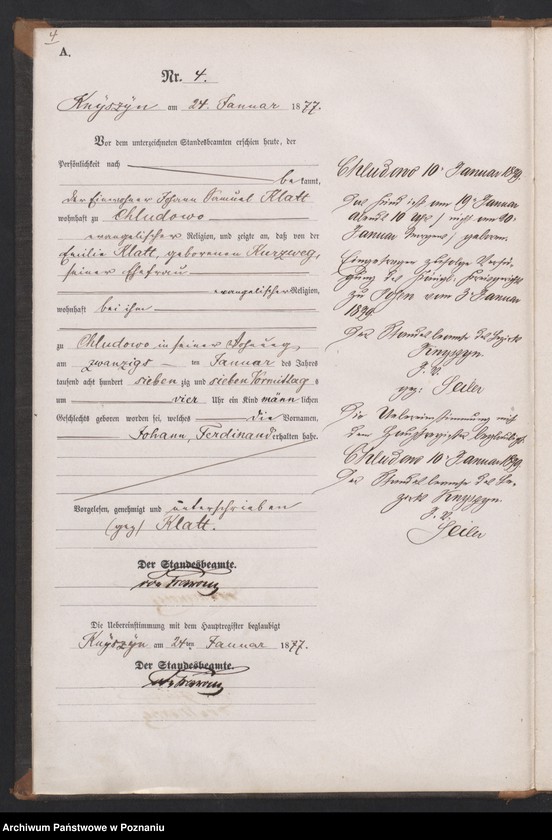 4
A.
Nr. 4.
Knyszyn am 24. Januar 1877.
Vor dem unterzeichneten Standesbeamten erschien heute, der
Persönlichkeit nach
bekannt,
der Einwohner Johann Samuel Klatt
wohnhaft zu Chludowo
evangelischer Religion, und zeigte an, daß von der
Emilie Klatt, geborenen Kurzweg,
seiner Ehefrau
evangelischer Religion,
wohnhaft bei ihm
zu Chludowo in seiner Wohnung,
am zwanzigsten Januar des Jahres
tausend acht hundert siebenzig und sieben Vormittag s
um vier Uhr ein Kind männlichen
Geschlechts geboren worden sei, welches die Vornamen
Johann, Ferdinand erhalten habe.
Vorgelesen, genehmigt und unterschrieben
(gez) Klatt.
Der Standesbeamte.
Die Uebereinstimmung mit dem Hauptregister beglaubigt
Knyszyn am 24ten Januar 1877.
Der Standesbeamte.
Chludowo 10. Januar 1879.
Das Kind ist am 19. Januar
Abends 10 Uhr, nicht am 20.
Januar Morgens, geboren.
Eingetragen zufolge Verfü-
gung des Königl. Kreisgerichts
zu Posen vom 3. Januar
1879.
Der Standesbeamte des Bezirks
Knyszyn.
I. V.
gez: Seiler
Die Uebereinstimmung mit
dem Hauptregister beglaubigt.
Chludowo 10. Januar 1879.
Der Standesbeamte des Be-
zirks Knyszyn.
I. V.
Seiler
Archiwum Państwowe w Poznaniu